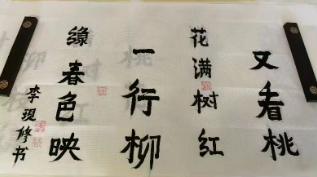 又看桃
花满树红
一行柳
缘春色映
李现修书